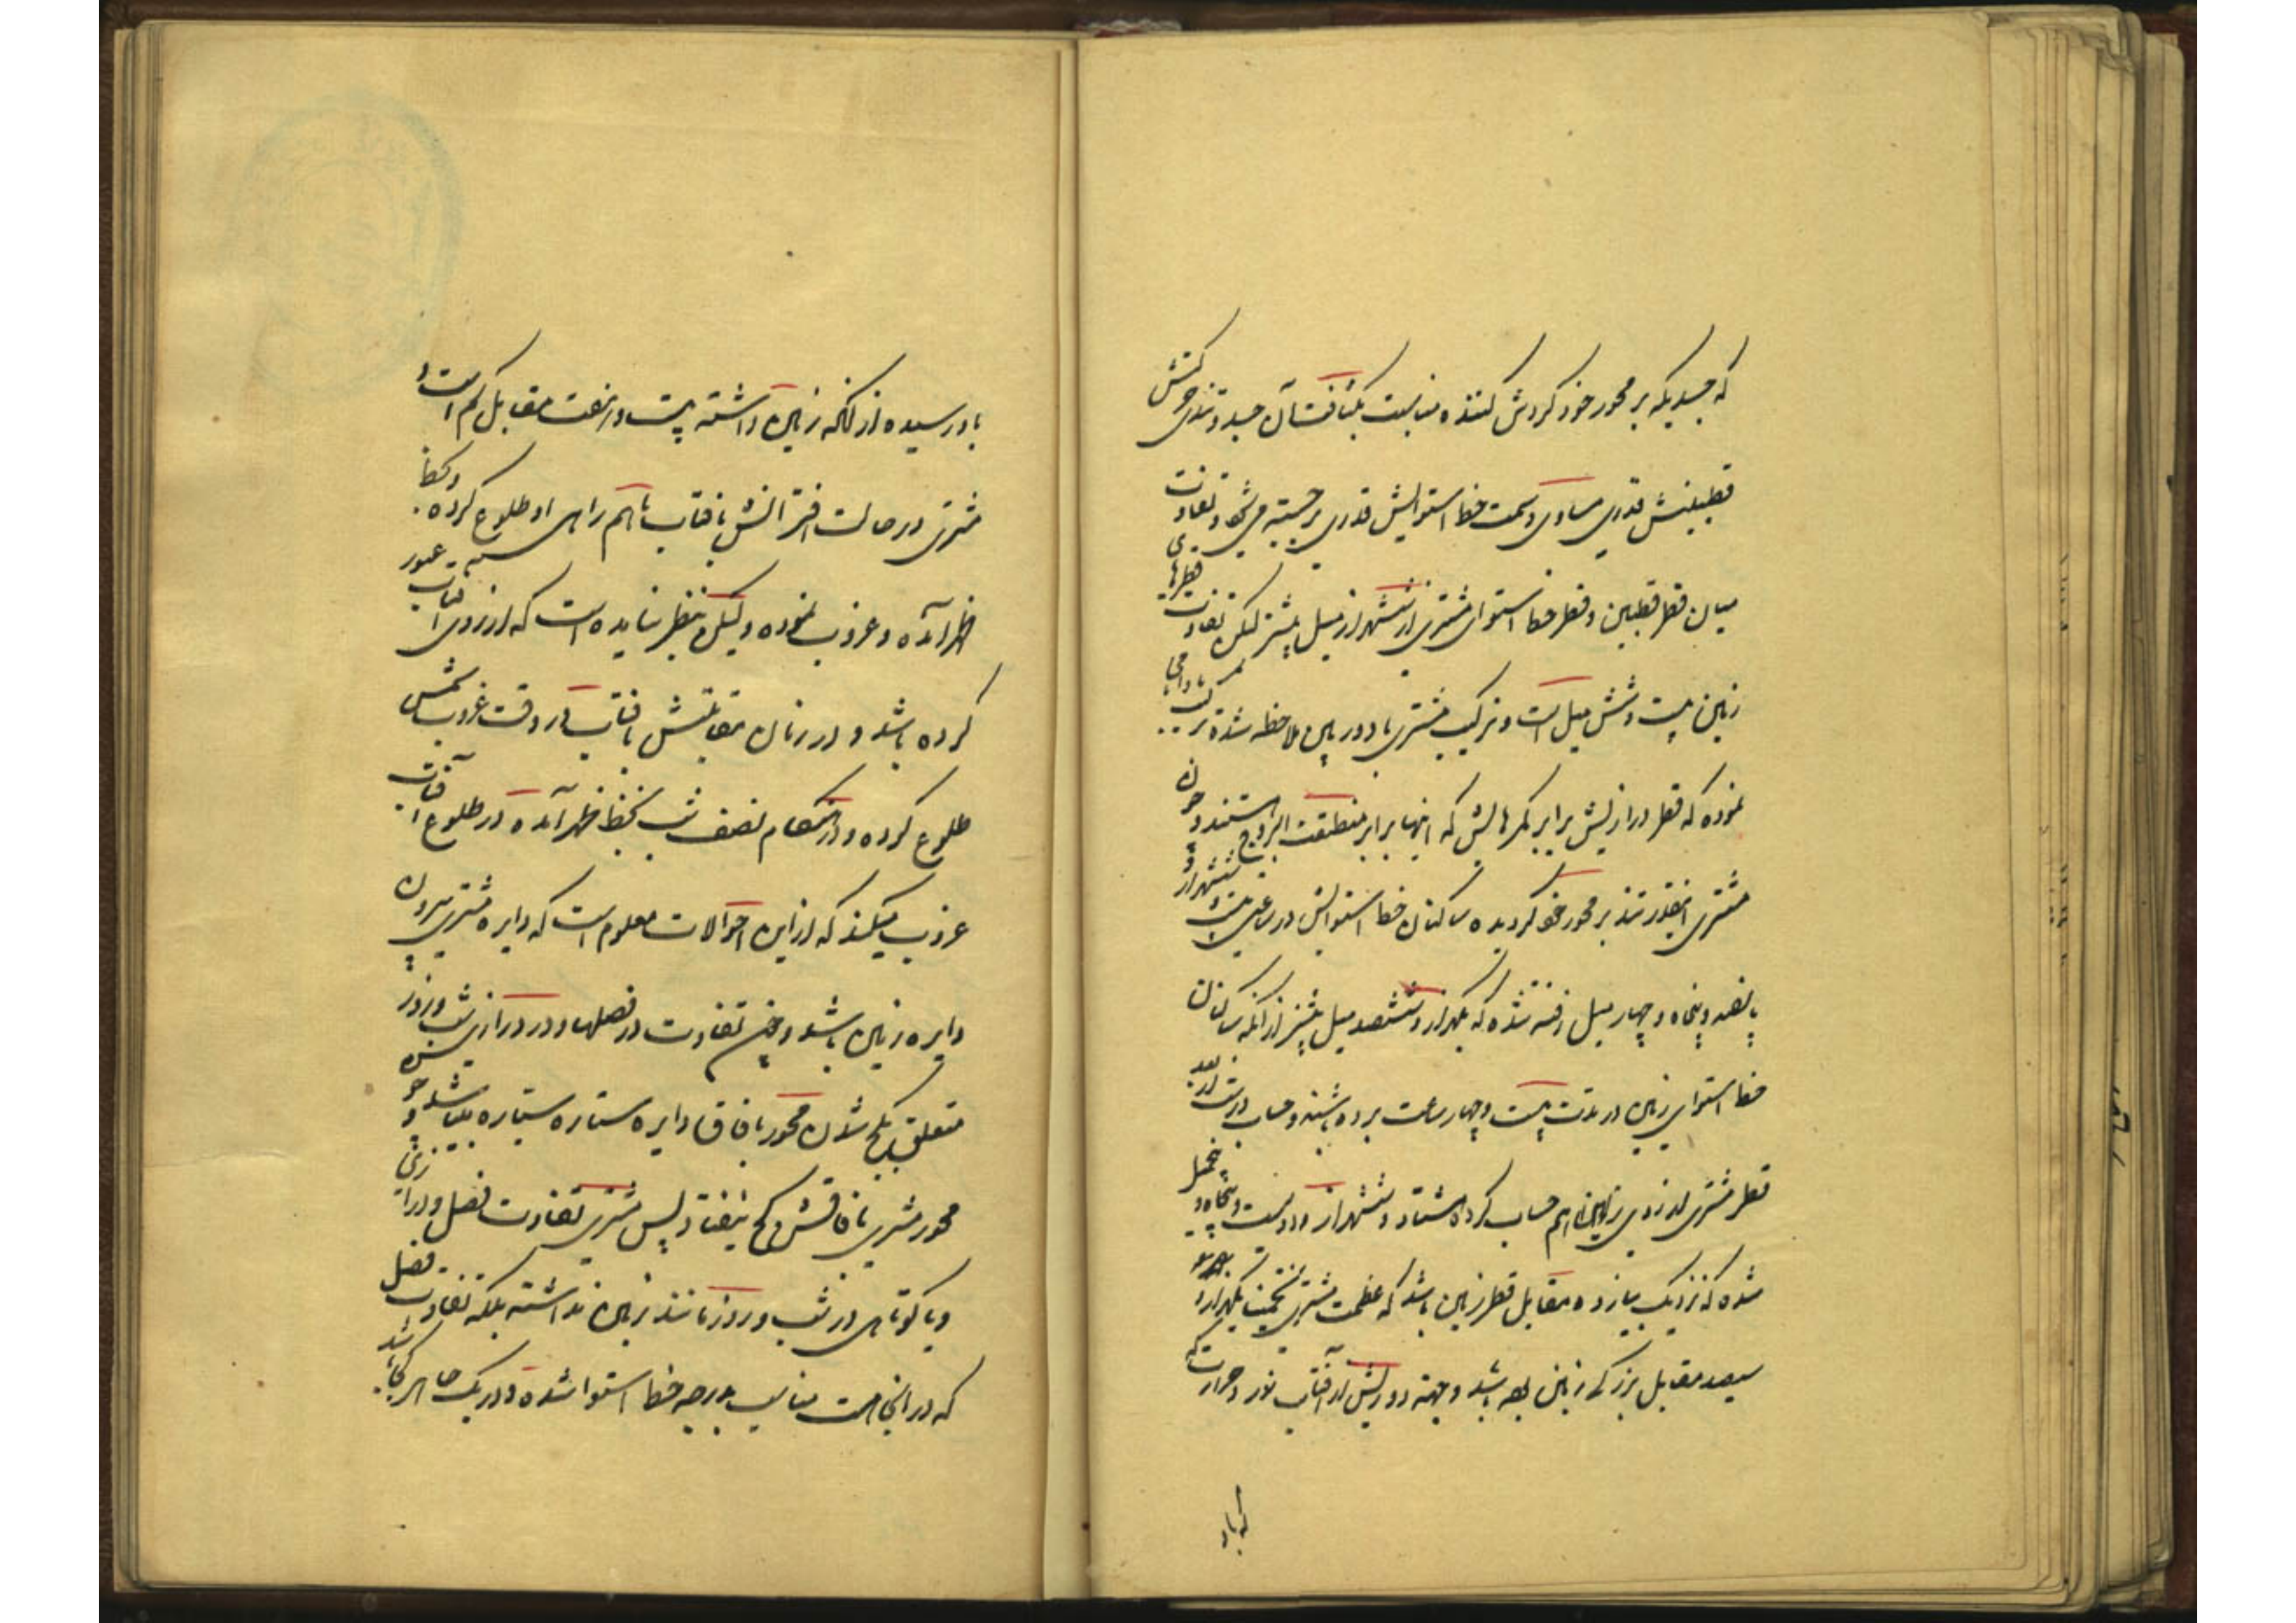 که جسدیکه بر محور خود کردش کننده مناسبت بکثافت آن جسد و تندی حرکتش
قطبینش قدری مساوی و سمت خط استوایش قدری برجسته میشود و تفاوت
میان قطر قطبین و قطر خط استوای مشتری از ششهزار میل بیشتر لیکن تفاوت قطرهای
زمین بیست و شش میل است و ترکیب مشتری با دوربین ملاحظه شده ترکیب
نموده که قطر درازیش برابر کمرهایش که اینها برابر منطقة البروج هستند و چون
مشتری اینقدر تند بر محور خود کردیده ساکنان خط استوایش در ساعتی بیست و ششهزار و
پانصد و پنجاه و چهار میل رفته شده که یکهزار و ششصد میل بیشتر از آنکه ساکنان
خط استوای زمین در مدت بیست و چهار ساعت برده باشند و حساب درست از بعد
قطر مشتری از روی زمین را هم حساب کرده هشتاد و ششهزار و دویست و پنجاه و پنج میل
شده که نزدیک بیازده مقابل قطر زمین باشد که عظمت مشتری تخمیناً یکهزار و
سیصد مقابل بزرکی زمین بوده باشد و جهة دوریش از آفتاب نور و حرارت که
که باو
باو رسیده از آنکه زمین داشته بیست و هفت مقابل کم است و
مشتری در حالت اقترانش بآفتاب باهم راهی او طلوع کرده و بخط
ظهر آمده و غروب نموده و لیکن بنظر نیامده است که از روی آفتاب عبور
کرده باشد و در زمان مقابلتش بآفتاب در وقت غروب شمس
طلوع کرده و در هنکام نصف شب بخط ظهر آمده در طلوع آفتاب
غروب میکند که از این احوالات معلوم است که دایره مشتری بیرون
دایره زمین باشد و چون تفاوت در فصلها و در درازی شب و روز
متعلق بکج شدن محور بآفاق دایره ستاره سیاره میباشد و چون
محور مشتری بآفاقش کج نیفتاد پس مشتری تفاوت فصل و درازی
و یا کوتاهی در شب و روز مانند زمین نداشته بلکه تفاوت فصل
که در انجا هست مناسب بدرجه خط استوا شده و در یک جا هر کجا باشد